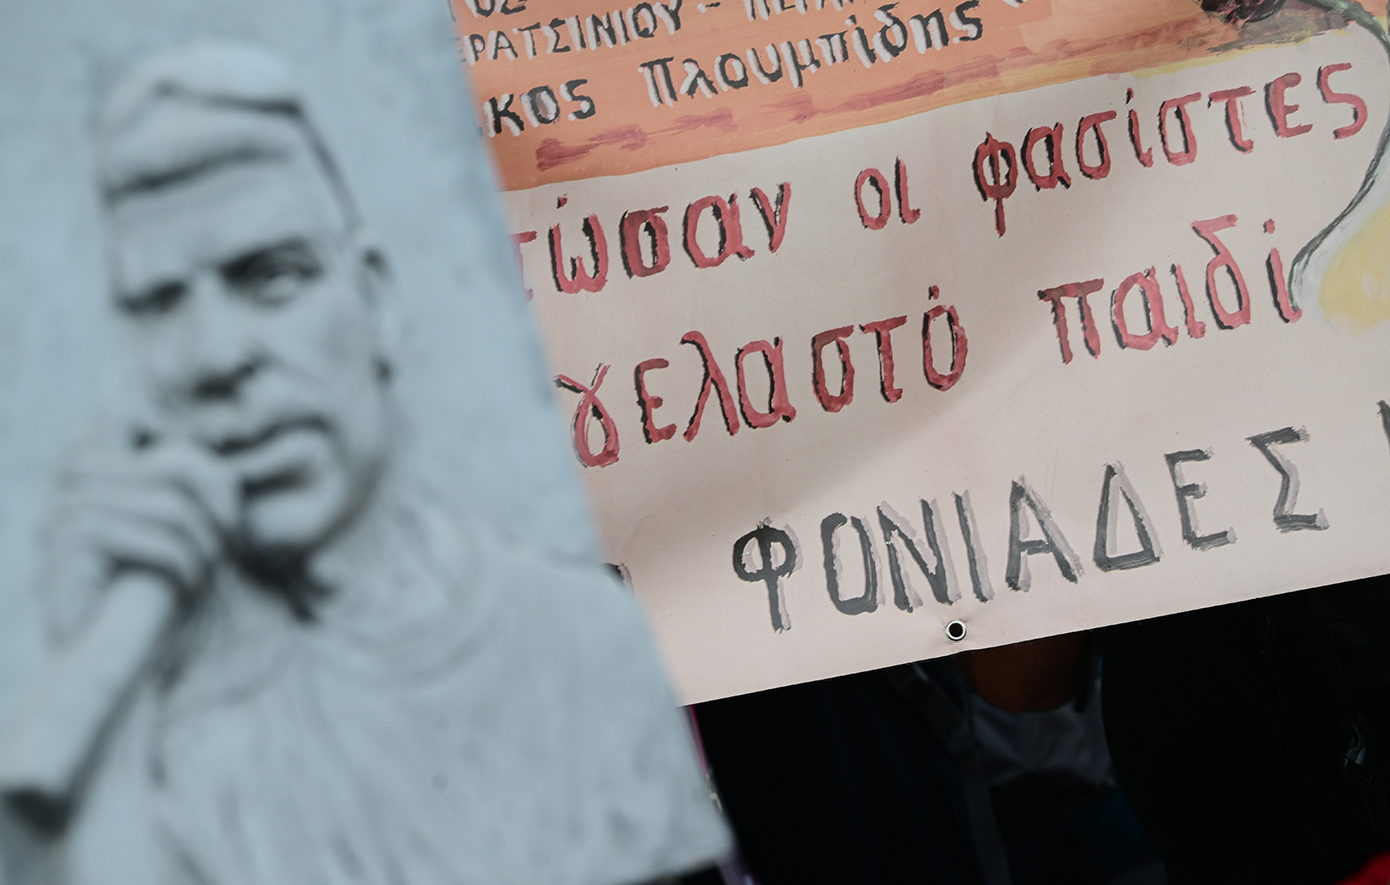 ΡΑΤΣΙΝΙΟΥ -
κος Πλουμπίδης
τώσαν οι φασίστες
γελαστό παιδί
ΦΟΝΙΑΔΕΣ